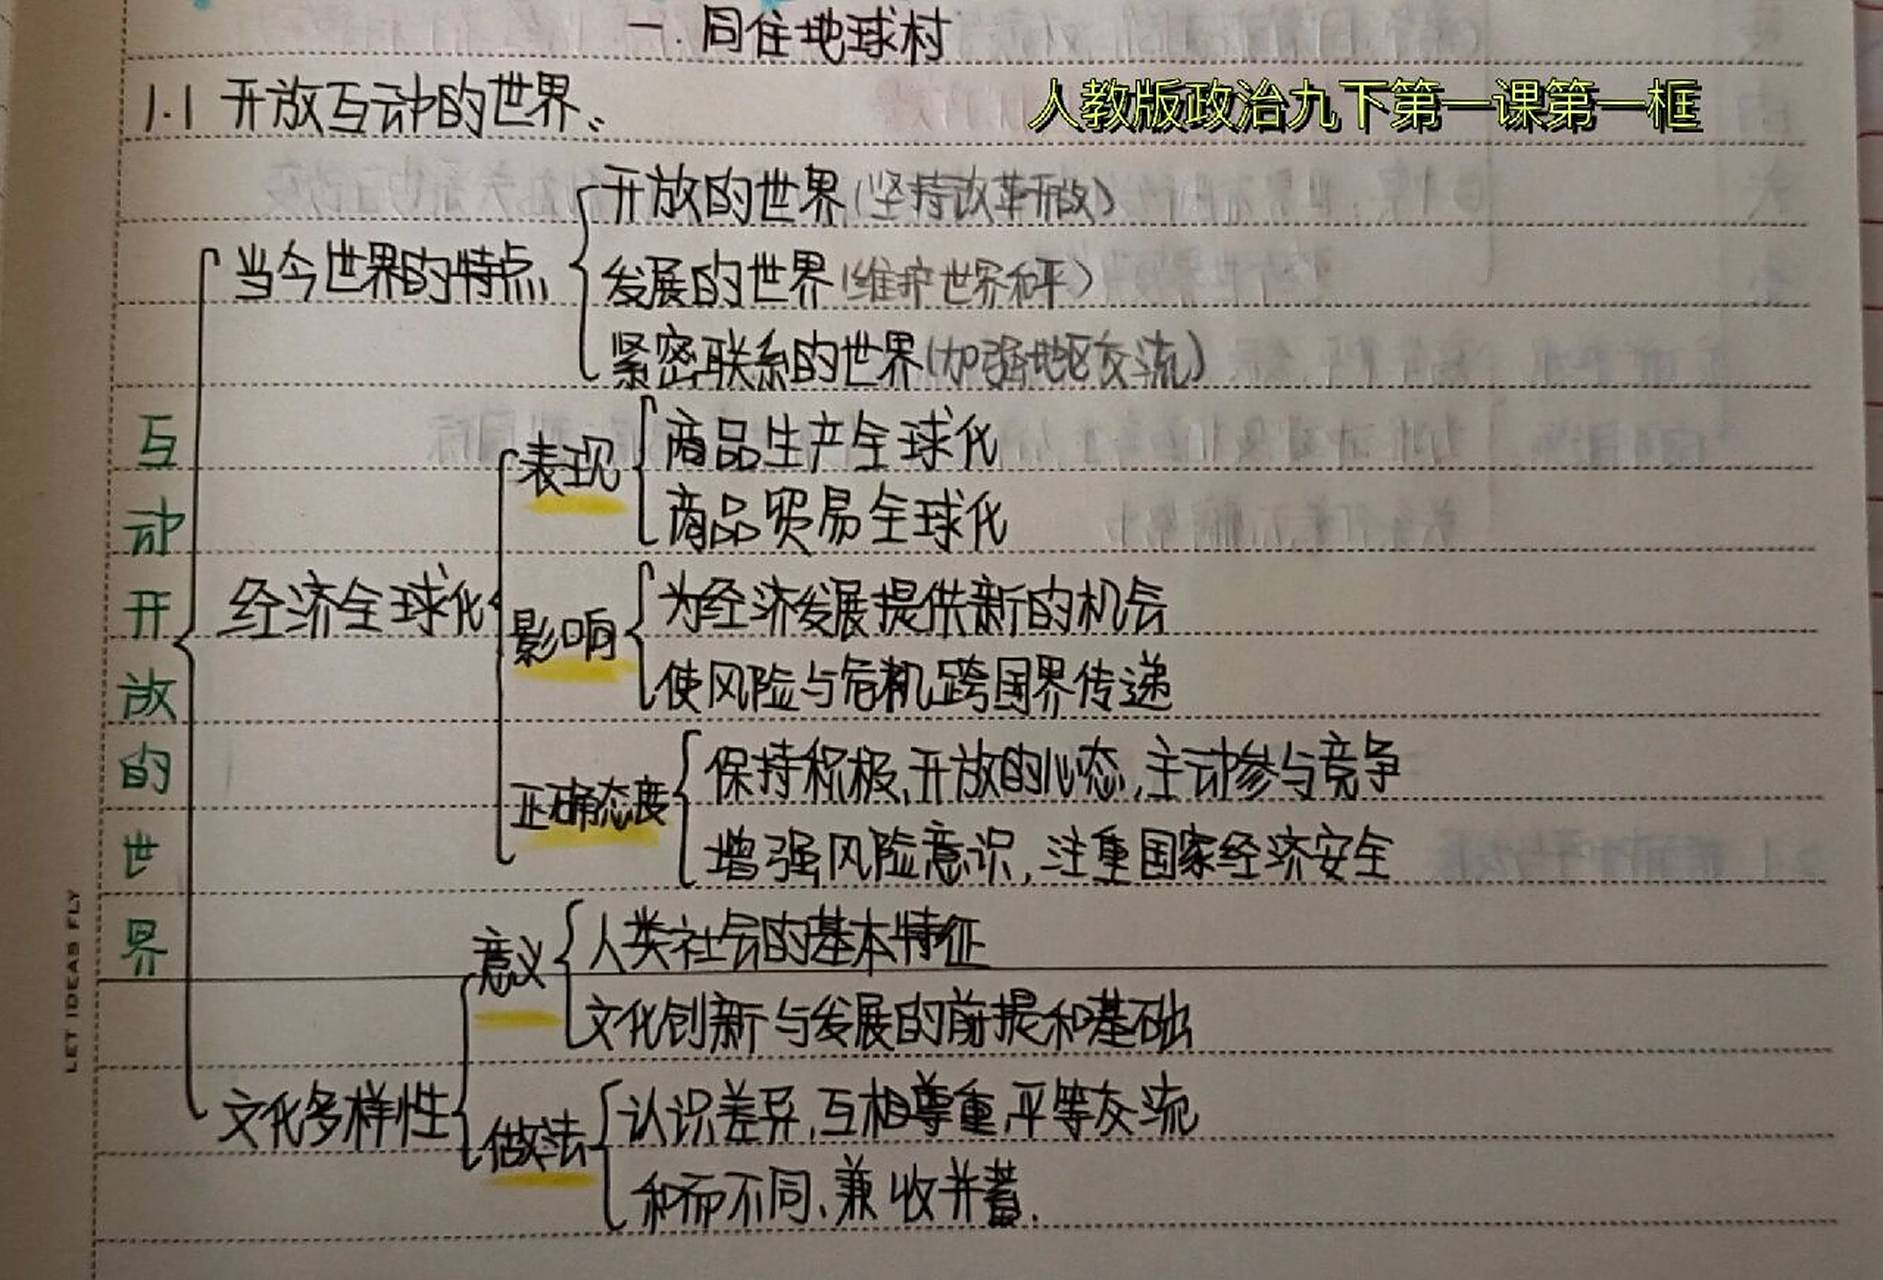 一.同住地球村
1.1 开放互动的世界。
人教版政治九下第一课第一框
互动开放的世界
当今世界的特点
开放的世界(坚持改革开放)
发展的世界(维护世界和平)
紧密联系的世界(加强地区交流)
经济全球化
表现
商品生产全球化
商品贸易全球化
影响
为经济发展提供新的机会
使风险与危机跨国界传递
正确态度
保持积极、开放的心态,主动参与竞争
增强风险意识,注重国家经济安全
文化多样性
意义
人类社会的基本特征
文化创新与发展的前提和基础
做法
认识差异,互相尊重,平等交流
和而不同、兼收并蓄.
LET IDEAS FLY